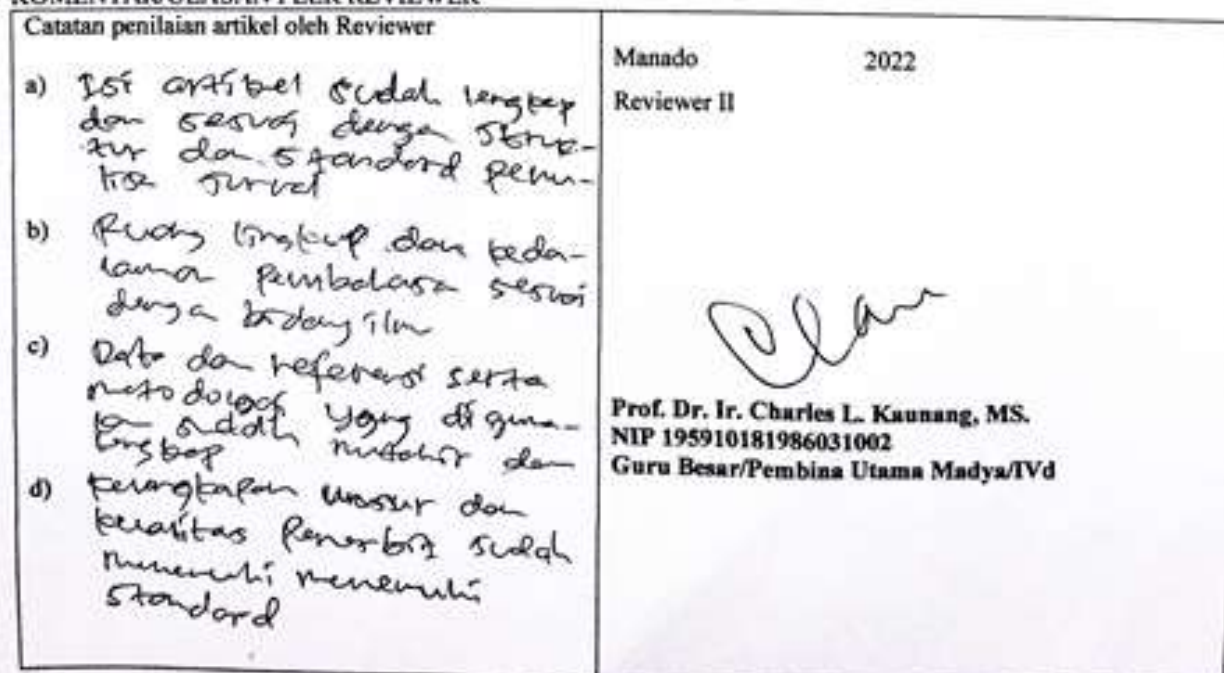 KOMENTAR/ULASAN PEER REVIEWER
Catatan penilaian artikel oleh Reviewer
a) Isi artikel sudah lengkap
dan sesuai dengan struk-
tur dan standard penu-
lisa jurnal
b) Ruang lingkup dan keda-
laman pembahasa sesuai
denga bidang ilmu
c) Data dan referensi serta
metodologi yang di guna-
kan sudah mutahir dan
lengkap
d) kelengkapan unsur dan
kualitas Penerbit sudah
memenuhi memenuhi
standard
Manado 2022
Reviewer II
Prof. Dr. Ir. Charles L. Kaunang, MS.
NIP 195910181986031002
Guru Besar/Pembina Utama Madya/IVd